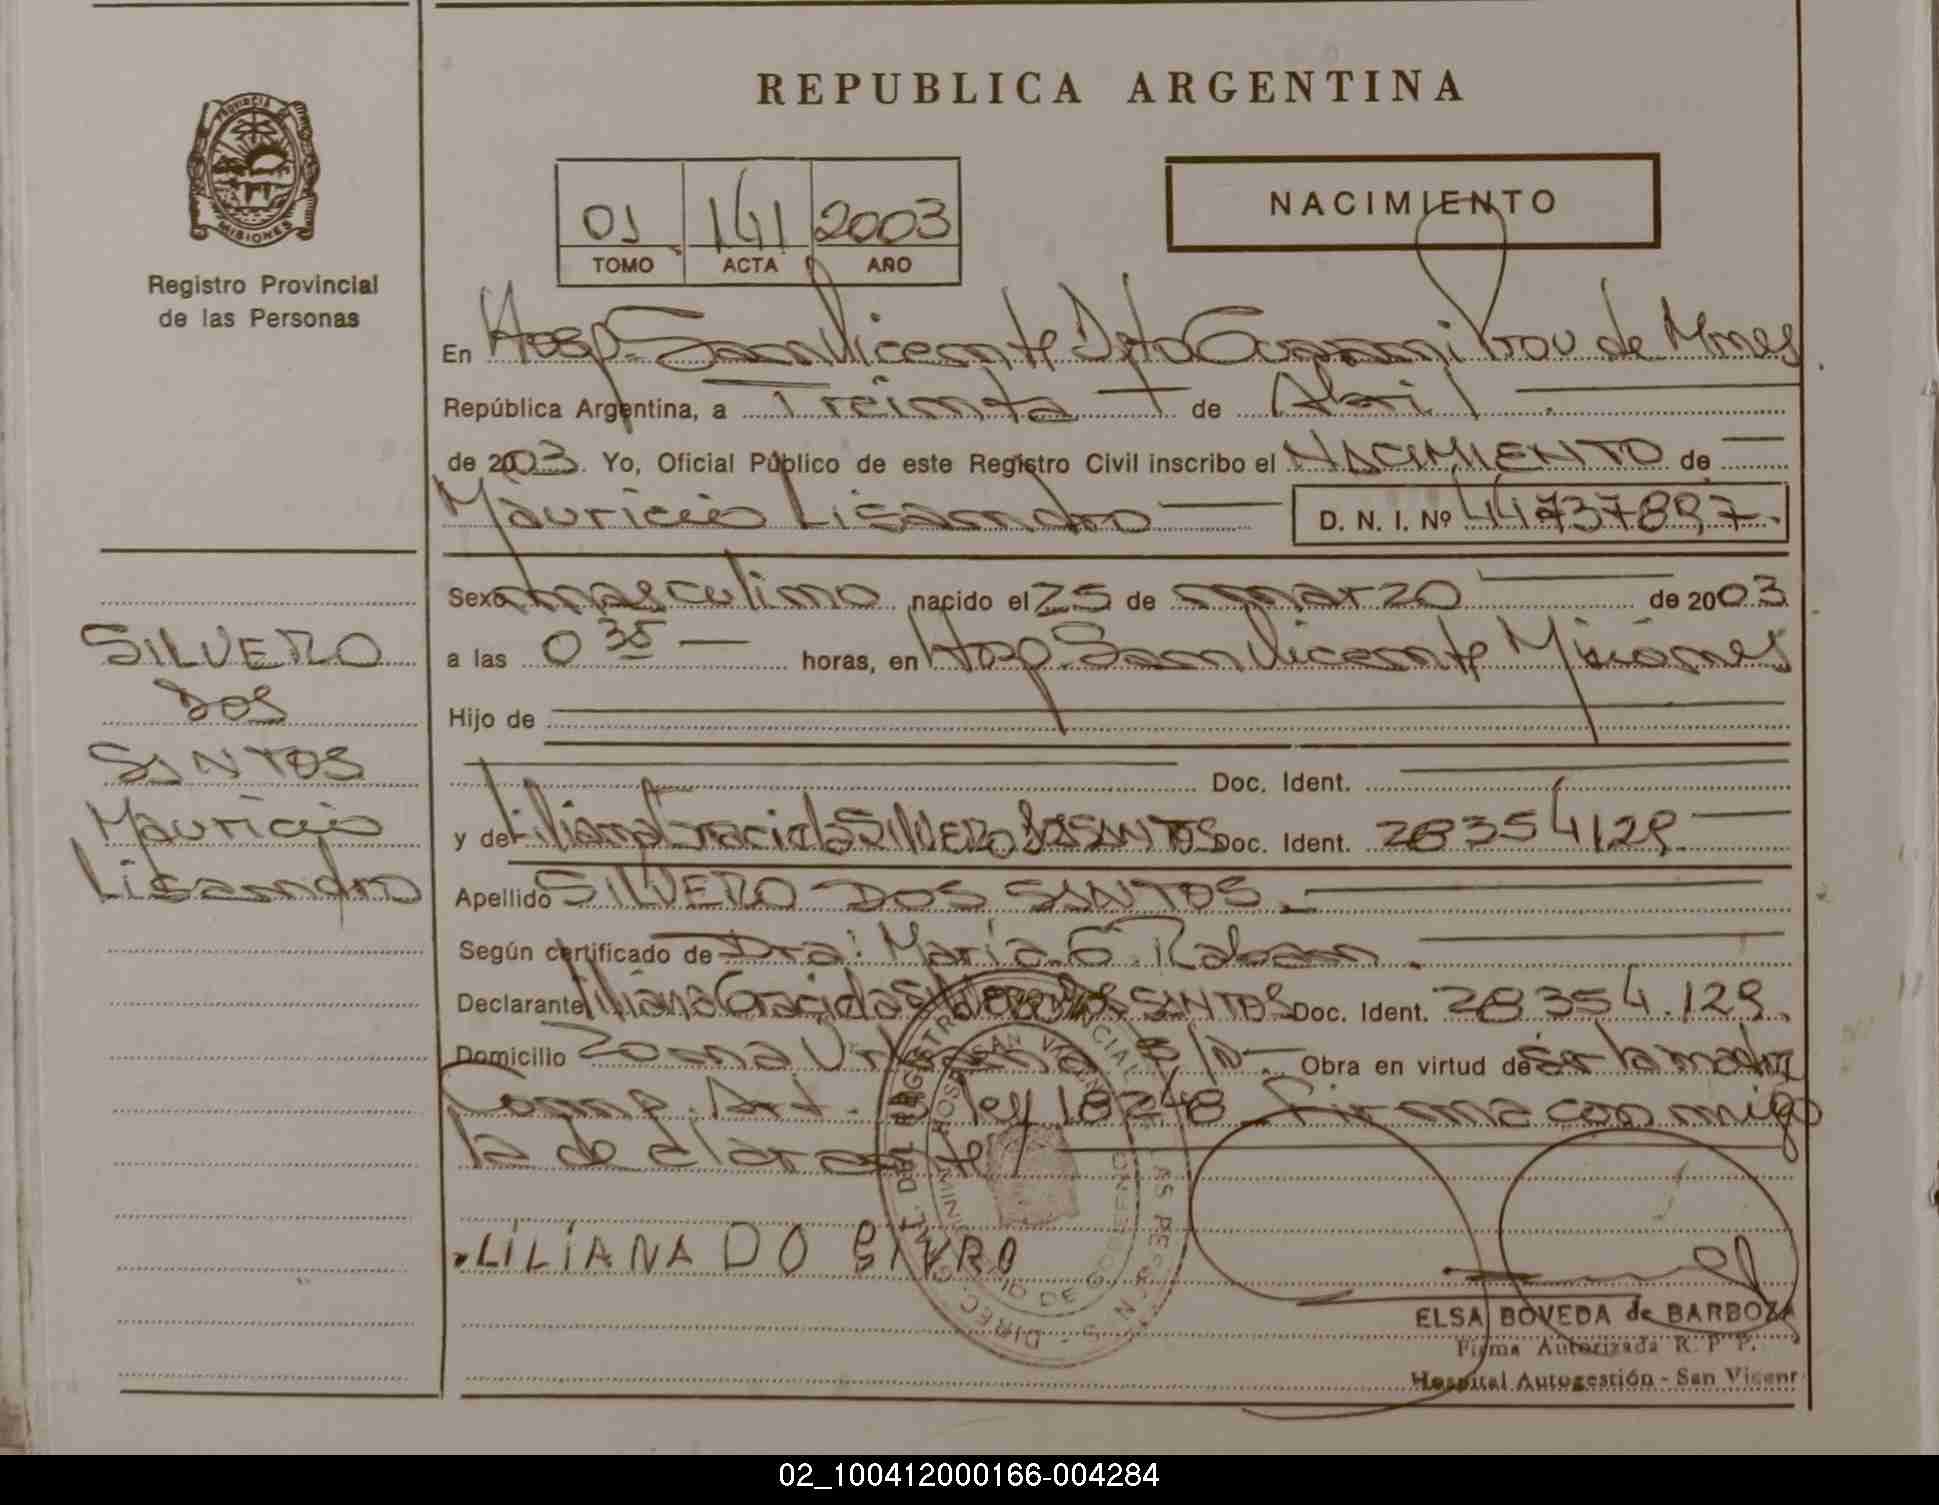 REPUBLICA ARGENTINA
PROVINCIA
MISIONES
Registro Provincial
de las Personas
01 141 2003
TOMO ACTA AÑO
NACIMIENTO
En Hosp. San Vicente Dpto Guarani Prov de Mnes
República Argentina, a Treinta de Abril
de 2003. Yo, Oficial Público de este Registro Civil inscribo el NACIMIENTO de
Mauricio Lisandro D. N. I. Nº 44737897.
Sexo masculino nacido el 25 de marzo de 2003
a las 0 35 horas, en Hosp. San Vicente Misiones
Hijo de
Doc. Ident.
y de Liliana Graciela SILVERO DOS SANTOS Doc. Ident. 28354129.
Apellido SILVERO DOS SANTOS.
Según certificado de Dra: María G. Raban.
Declarante Liliana Graciela Silvero DOS SANTOS Doc. Ident. 28354.129.
Domicilio Zona Urbana S/N. Obra en virtud de Ser la madre
Comp. Art. ley 18248 Firma conmigo
la declarante
LiLiANA DO
SILVERO
DOS
SANTOS
Mauricio
Lisandro
ELSA BOVEDA de BARBOZA
Firma Autorizada R. P. P.
Hospital Autogestión - San Vicent
02_100412000166-004284